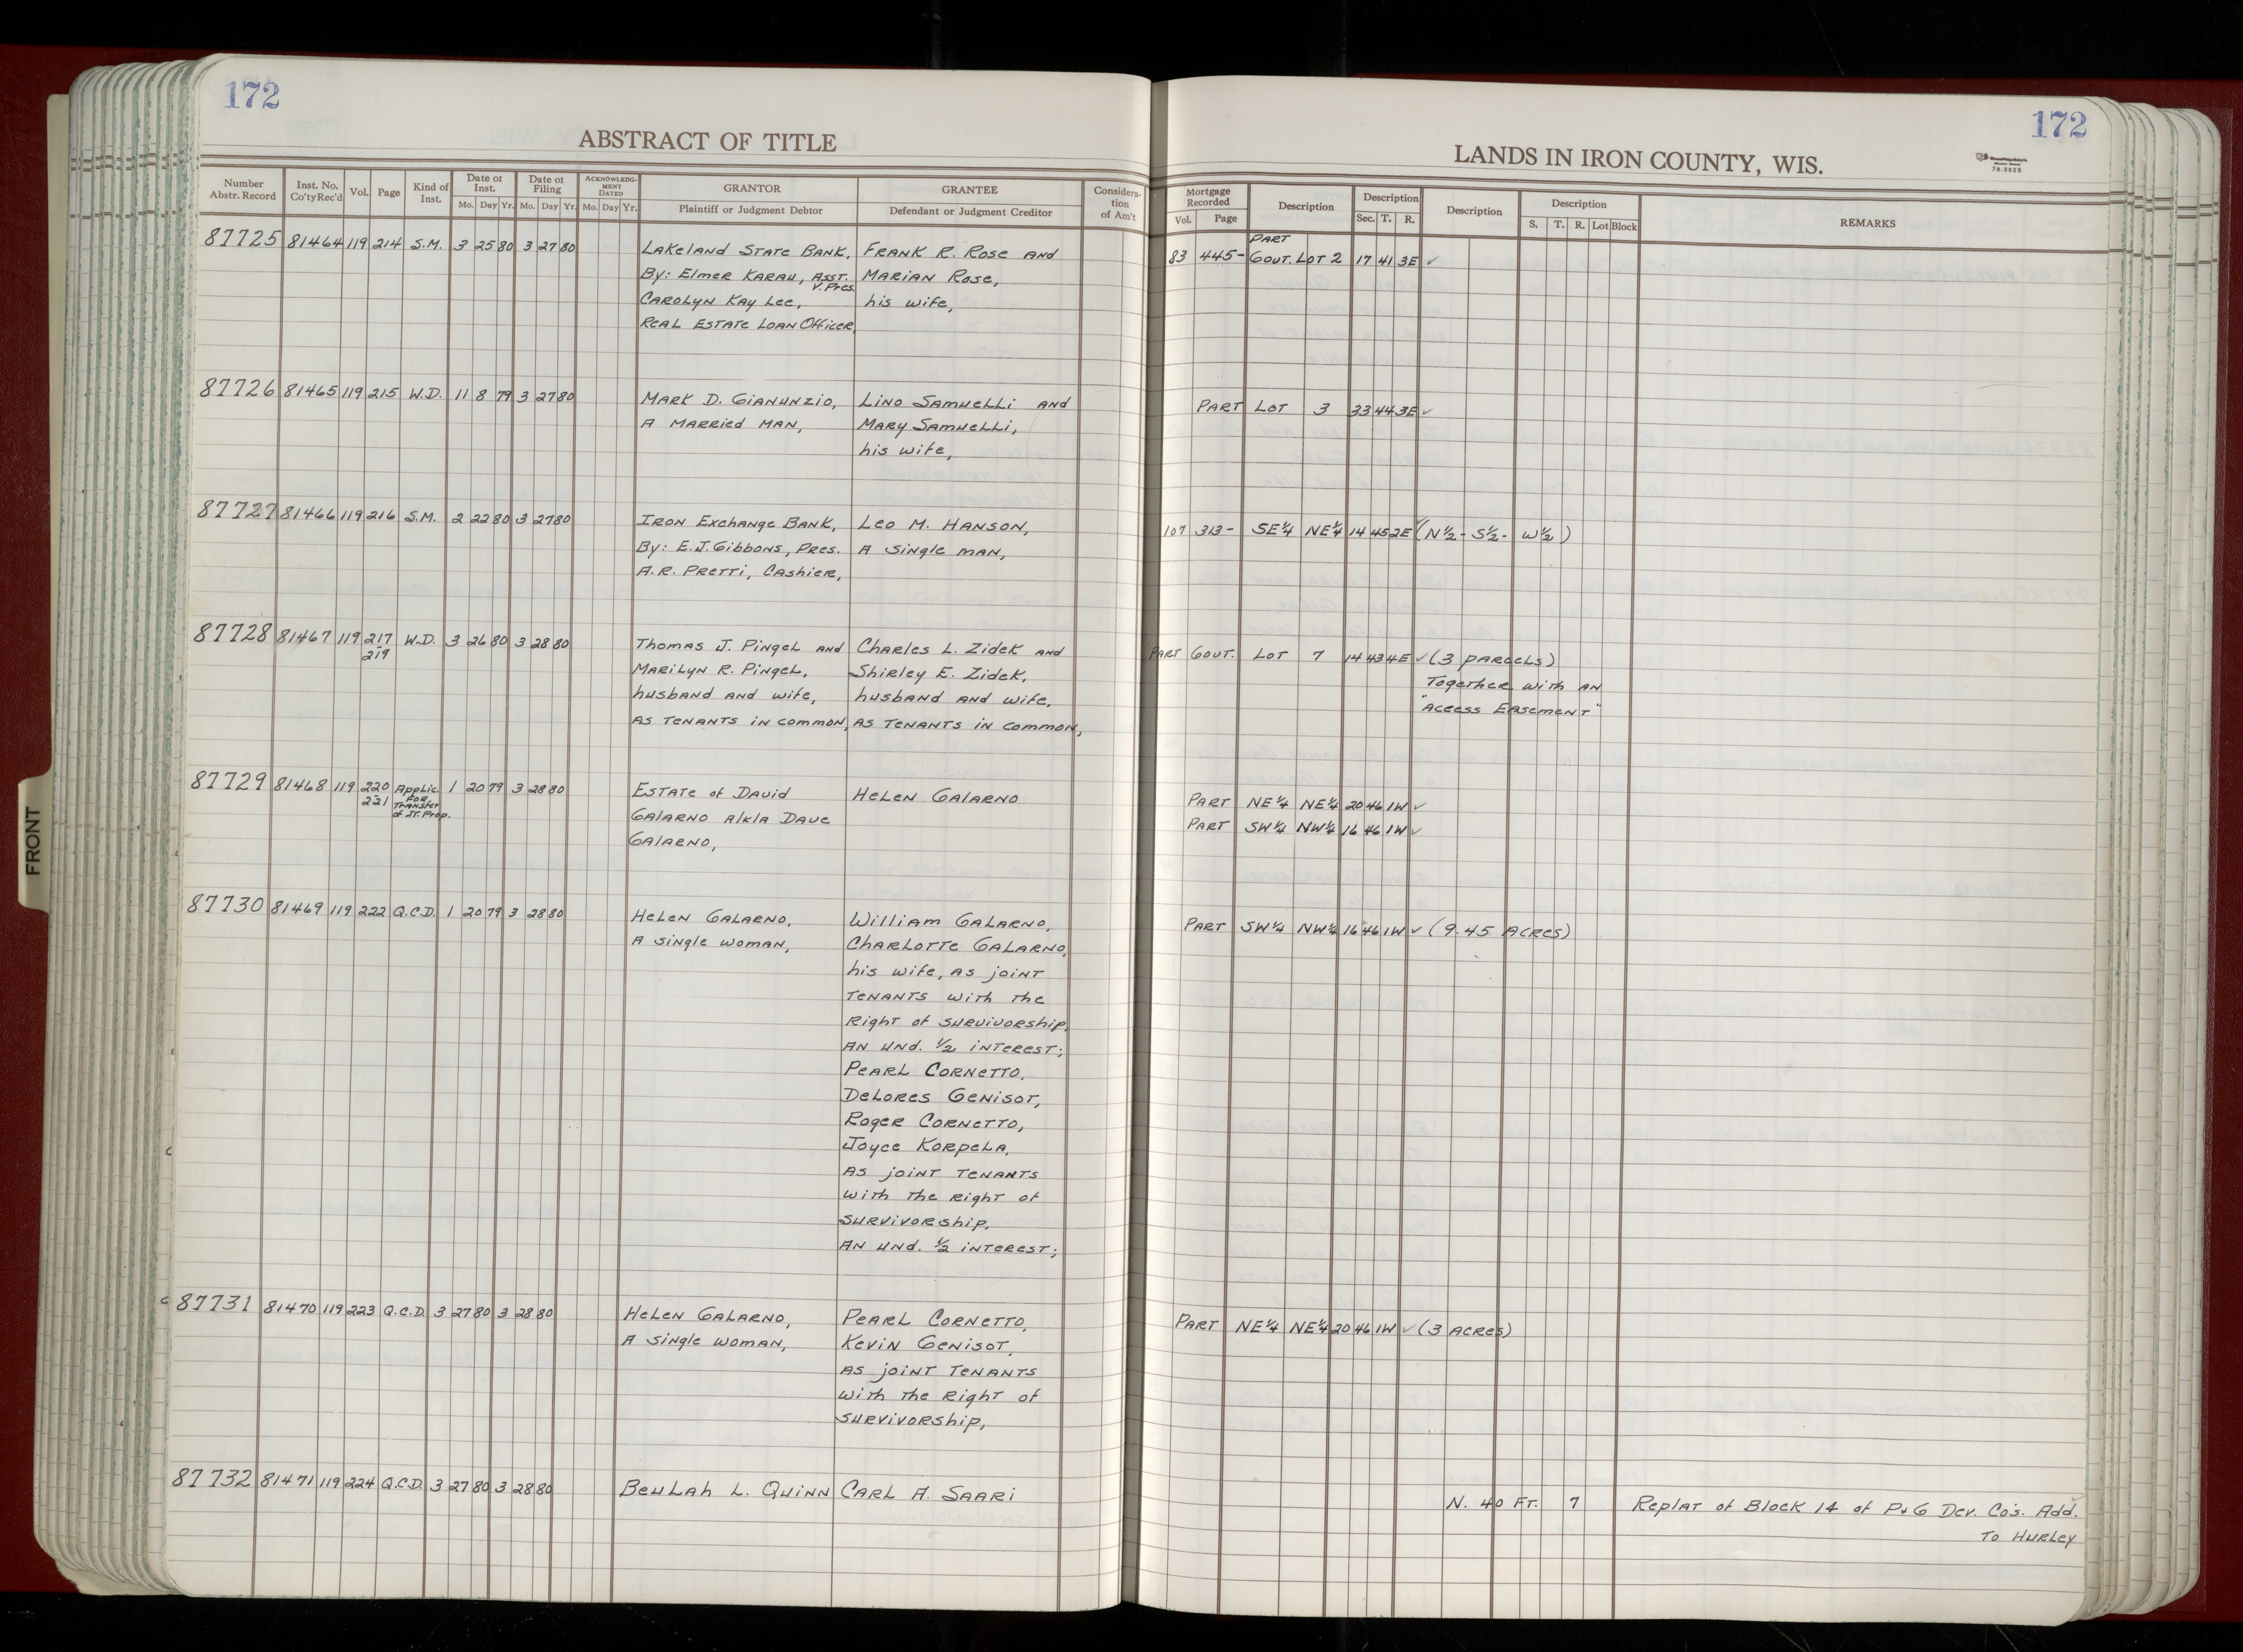 172
172
ABSTRACT OF TITLE
LANDS IN IRON COUNTY, WIS.
78-3525
Number Abstr. Record
Inst. No. Co'ty Rec'd
Vol.
Page
Kind of Inst.
Date of Inst.
Mo. Day Yr.
Date of Filing
Mo. Day Yr.
ACKNOWLEDG-MENT DATED
Mo. Day Yr.
GRANTOR
Plaintiff or Judgment Debtor
GRANTEE
Defendant or Judgment Creditor
Considera-tion of Am't
Mortgage Recorded
Vol. Page
Description
Description
Sec. T. R.
Description
Description
S. T. R. Lot Block
REMARKS
87725 81464 119 214 S.M. 3 25 80 3 27 80 Lakeland State Bank, Frank R. Rose and 83 445- Part Gout. Lot 2 17 41 3E ✓
By: Elmer Karau, Asst. V. Pres. Marian Rose,
Carolyn Kay Lee, his wife,
Real Estate Loan Officer
87726 81465 119 215 W.D. 11 8 79 3 27 80 Mark D. Gianunzio, Lino Samuelli and Part Lot 3 33 44 3E ✓
A married man, Mary Samuelli,
his wife,
87727 81466 119 216 S.M. 2 22 80 3 27 80 Iron Exchange Bank, Leo M. Hanson, 107 313- SE¼ NE¼ 14 45 2E ✓ (N½ - S½ - W½)
By: E.J. Gibbons, Pres. A single man,
A.R. Pretti, Cashier,
87728 81467 119 217-219 W.D. 3 26 80 3 28 80 Thomas J. Pingel and Charles L. Zidek and Part Gout. Lot 7 14 43 4E ✓ (3 parcels)
Marilyn R. Pingel, Shirley E. Zidek, Together with an
husband and wife, husband and wife, "Access Easement"
as tenants in common, as tenants in common,
87729 81468 119 220-221 Applic. For Transfer of Jt. Prop. 1 20 79 3 28 80 Estate of David Helen Galarno Part NE¼ NE¼ 20 46 1W ✓
Galarno A/k/a Dave Part SW¼ NW¼ 16 46 1W ✓
Galarno,
87730 81469 119 222 Q.C.D. 1 20 79 3 28 80 Helen Galarno, William Galarno, Part SW¼ NW¼ 16 46 1W ✓ (9.45 Acres)
A single woman, Charlotte Galarno,
his wife, as joint
tenants with the
Right of survivorship,
an und. ½ interest;
Pearl Cornetto,
Delores Genisot,
Roger Cornetto,
Joyce Korpela,
as joint tenants
with the right of
survivorship,
an und. ½ interest;
87731 81470 119 223 Q.C.D. 3 27 80 3 28 80 Helen Galarno, Pearl Cornetto, Part NE¼ NE¼ 20 46 1W ✓ (3 acres)
A single woman, Kevin Genisot,
as joint tenants
with the right of
survivorship,
87732 81471 119 224 Q.C.D. 3 27 80 3 28 80 Beulah L. Quinn Carl A. Saari N. 40 Ft. 7 Replat of Block 14 of P & G Dev. Co's. Add.
To Hurley
FRONT